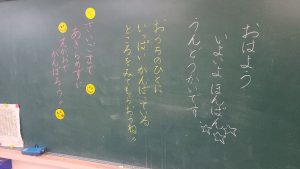 おはよう
いよいよほんばん
うんどうかいです
おうちのひとに
いっぱいがんばっている
ところをみてもらおうね!!
さいごまで
あきらめずに
えがおで
がんばろう!!